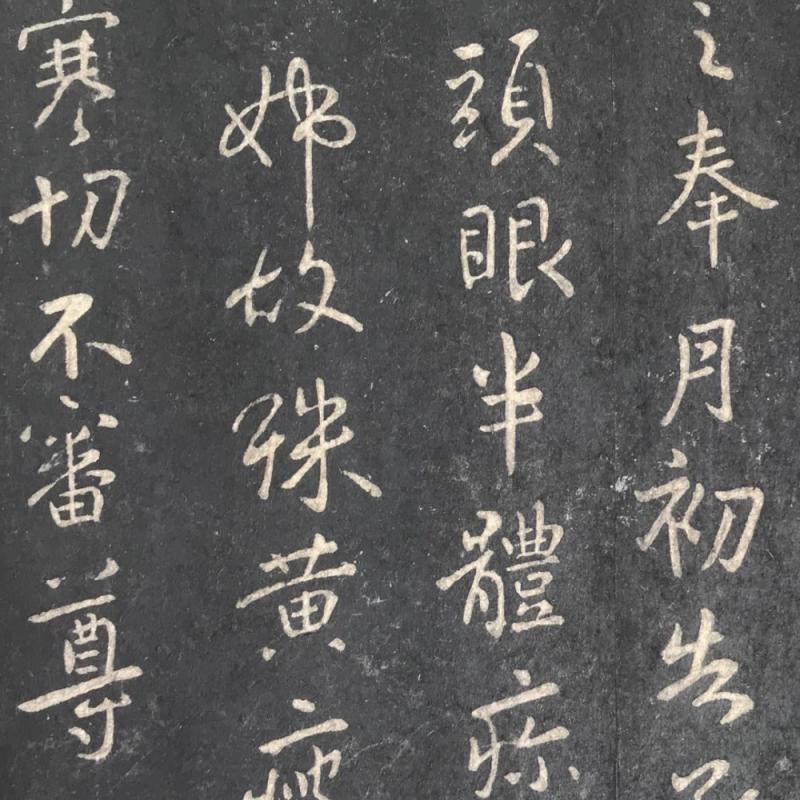 之奉月初告
頭眼半體疼
姊故殊黃瘦
寒切不審尊